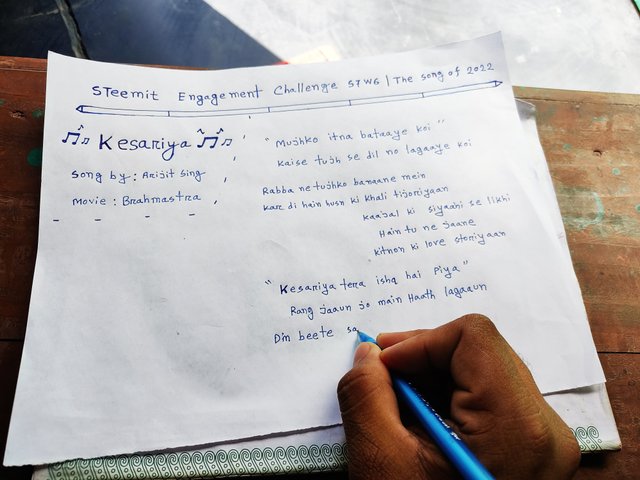 STeemit Engagement Challenge S7W6 | The song of 2022
Kesariya
Song by : Arijit Sing
Movie : Brahmastra
"Mujhko itna bataaye koi"
Kaise tujh se dil no lagaaye koi
Rabba ne tujhko banaane mein
kar di hain husn ki khali tijoriyaan
kaajal ki siyaahi se likhi
Hain tu ne jaane
kitnon ki love storiyaan
"Kesariya tera ishq hai Piya"
Rang jaaun jo main Haath lagaaun
Din beete sa